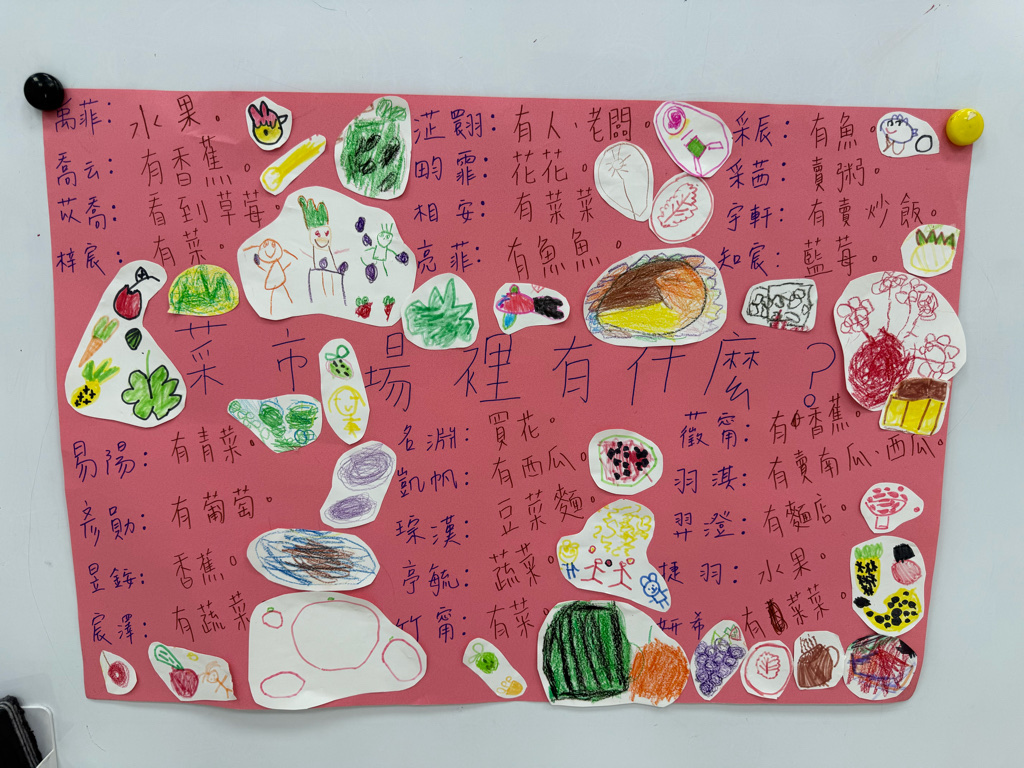 禹菲：水果。
喬云：有香蕉。
苡喬：看到草莓。
梓宸：有菜。
芷翾：有人、老闆。
畇霏：花花。
相安：有菜菜
亮菲：有魚魚。
采辰：有魚。
采茜：賣粥。
宇軒：有賣炒飯。
知宸：藍莓。
菜市場裡有什麼？
易陽：有青菜。
彥勛：有葡萄。
昱銨：香蕉。
宸澤：有蔬菜
名淵：買花。
凱帆：有西瓜。
琮漢：豆菜麵。
亭毓：蔬菜。
竹甯：有菜。
徽甯：有香蕉。
羽淇：有賣南瓜、西瓜
羿澄：有麵店。
捷羽：水果。
妍希：有菜菜。